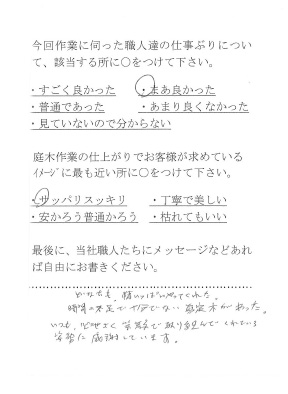 今回作業に伺った職人達の仕事ぶりについ
て、該当する所に〇をつけて下さい。
・すごく良かった ・まあ良かった
・普通であった ・あまり良くなかった
・見ていないので分からない
庭木作業の仕上がりでお客様が求めている
ｲﾒｰｼﾞに最も近い所に〇をつけて下さい。
・サッパリスッキリ ・丁寧で美しい
・安かろう普通かろう ・枯れてもいい
最後に、当社職人たちにメッセージなどあれ
ば自由にお書きください。
やってくれた。
時間の不足で 剪定 木があった。
いつも、心地よく 笑顔で取り組んでくれている
姿勢に感謝しています。